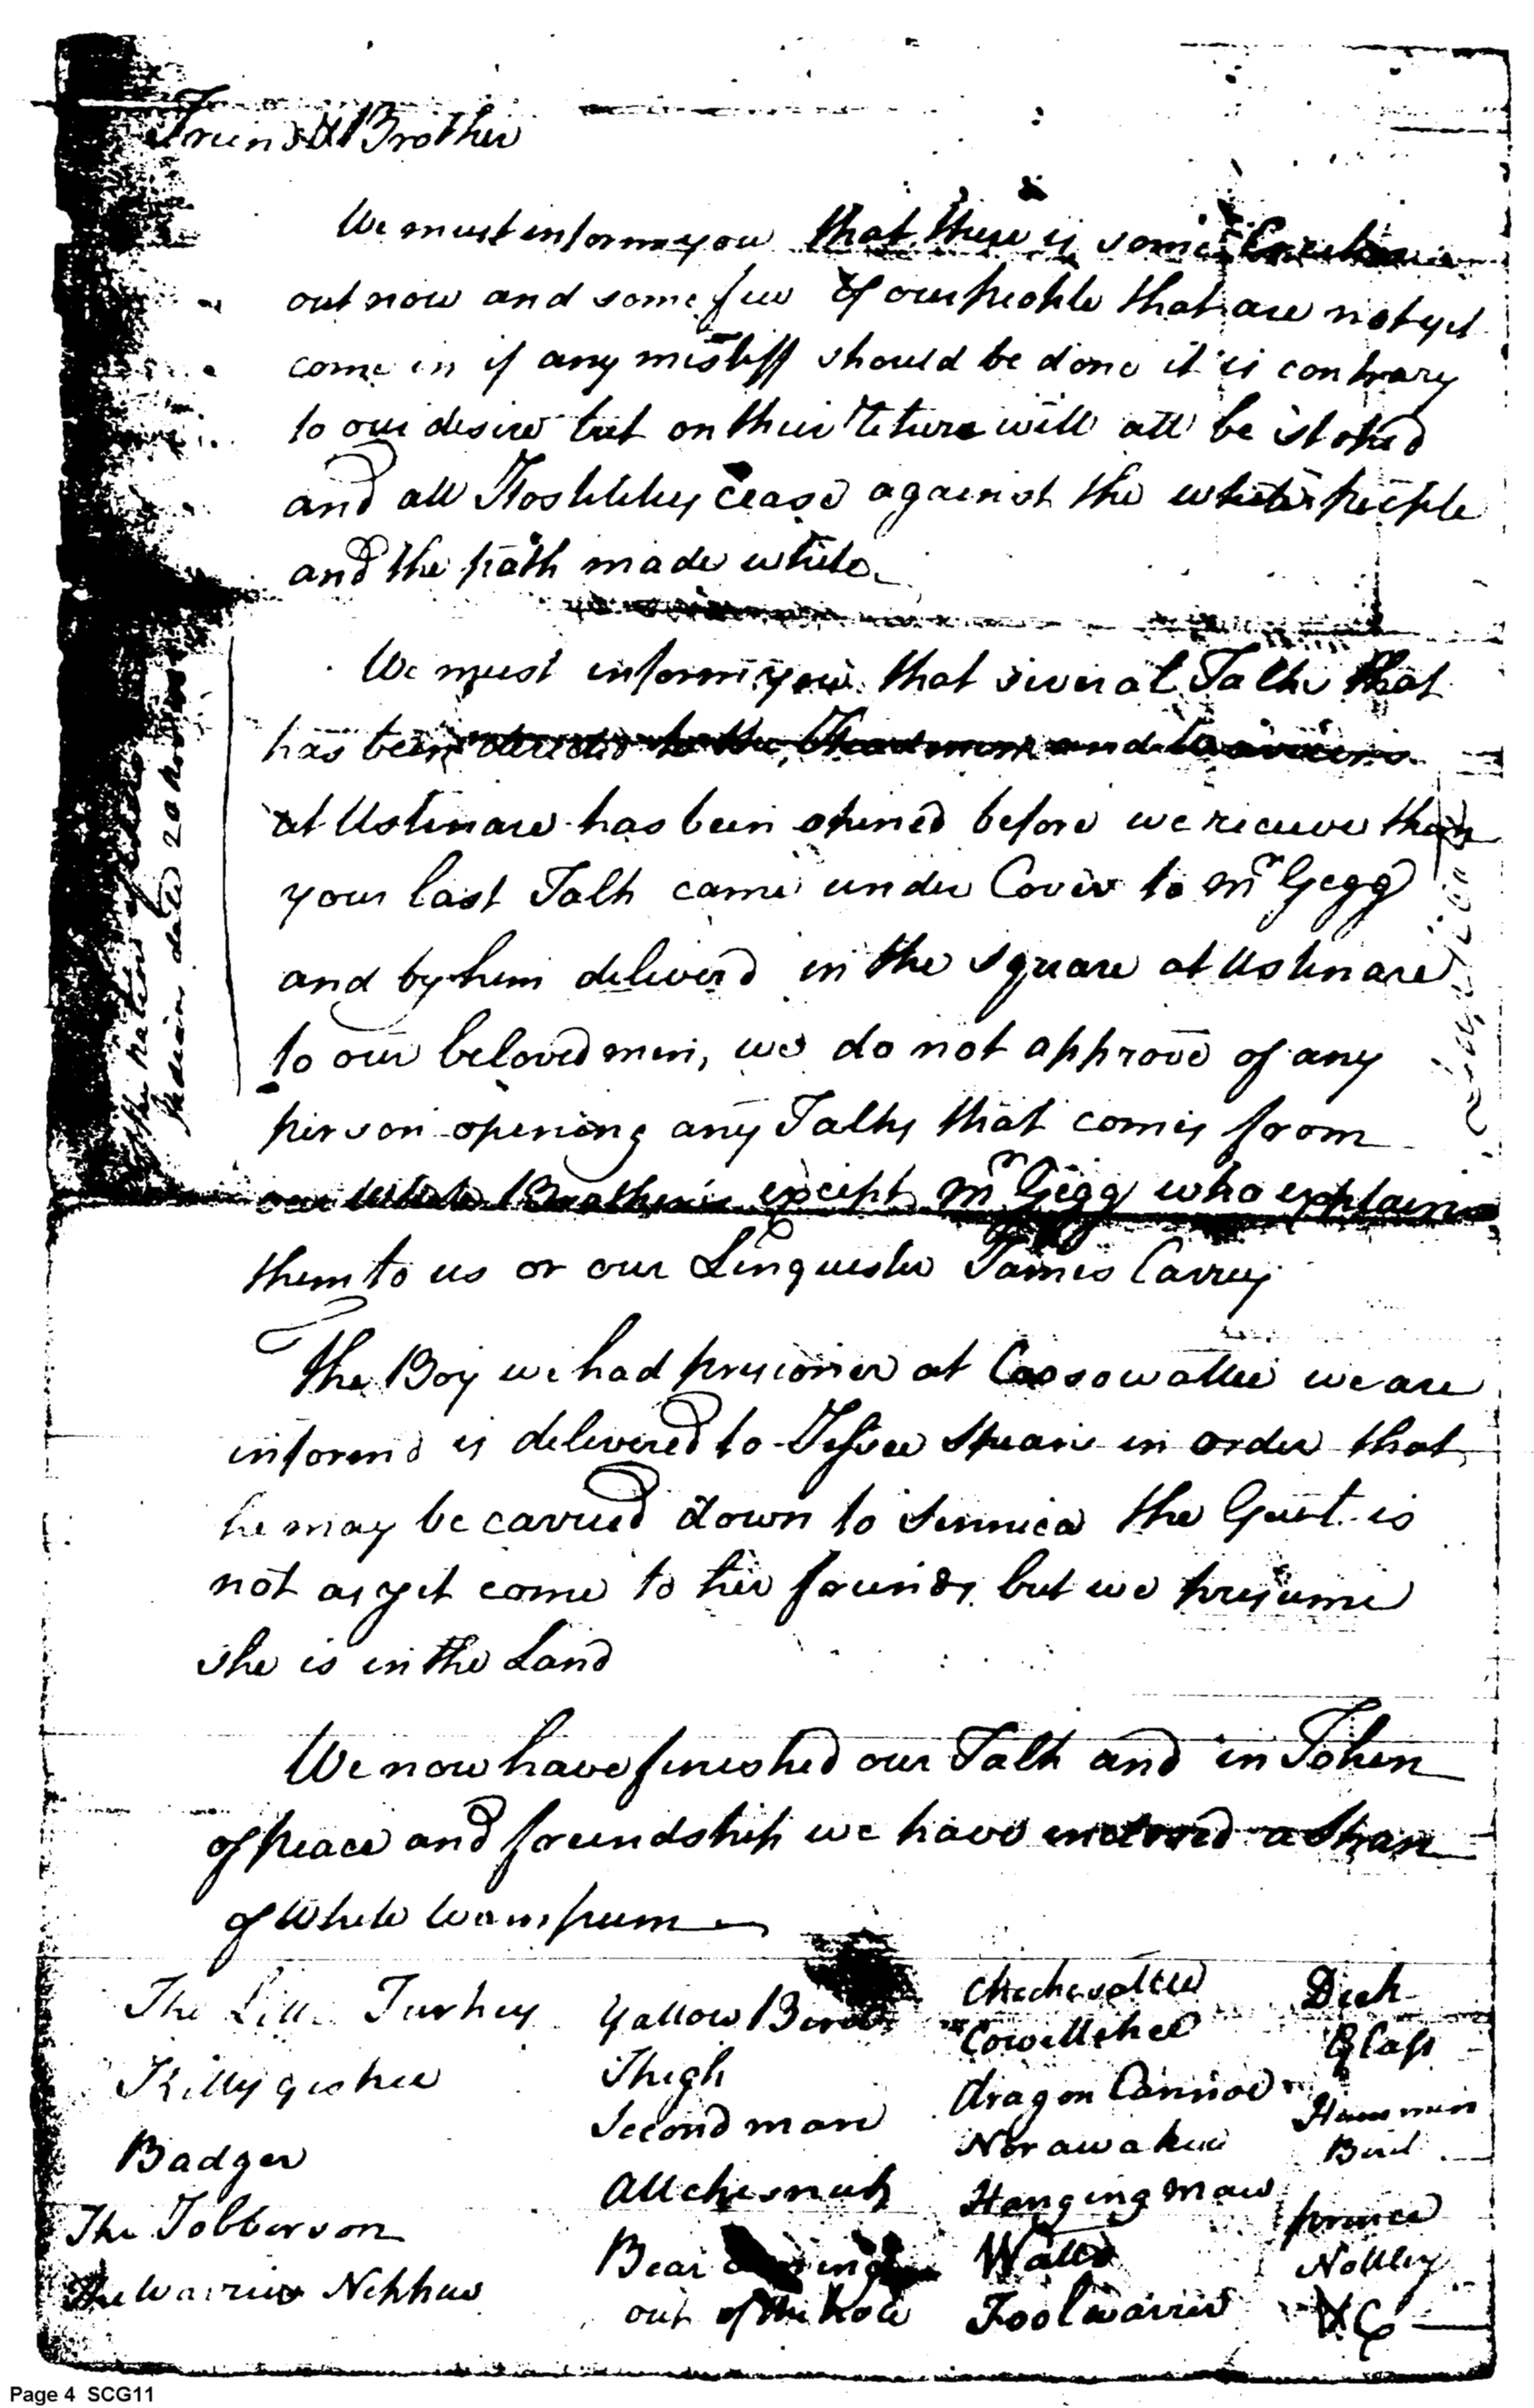 Freind & Brother
We must inform you that there is some
out now and some few of our people that are not yet
come in if any mistiff should be done it is contrary
to our desire but on their returе will all be stoped
and all Hostilitys cease against the white people
and the path made white
We must inform you that several Talks that
has been directed to the Headmen and Warriors
at Ustinare has been opined before we recieve them
your last Talk came under Cover to Mr Gegg
and by him deliverd in the square at Ustinare
to our beloved men, we do not approve of any
person opening any Talks that comes from
our White Brothers except Mr Gegg who explains
them to us or our Linguister James Carrey
The Boy we had prisoner at Coosowattee we are
informd is delivered to Jessee Spears in order that
he may be carried down to Sennica the Gurl is
not as yet come to her freinds but we presume
she is in the Land
We now have finished our Talk and in Token
of peace and freindship we have inclosed a Stran
of White Wampum
The Little Turkey Yallow Bird Chickesattee Dick
Killygeskee Thigh Cowetteskee Glass
Badger Second man dragon Cannoe Hummin
The Jobberson Norawakee Bird
The Warrior Nekkaw Bear Hanging Maw prince
out of the hole Watts Nottley
Foolwarrior &C
dated 20 Nov
Page 4 SCG11